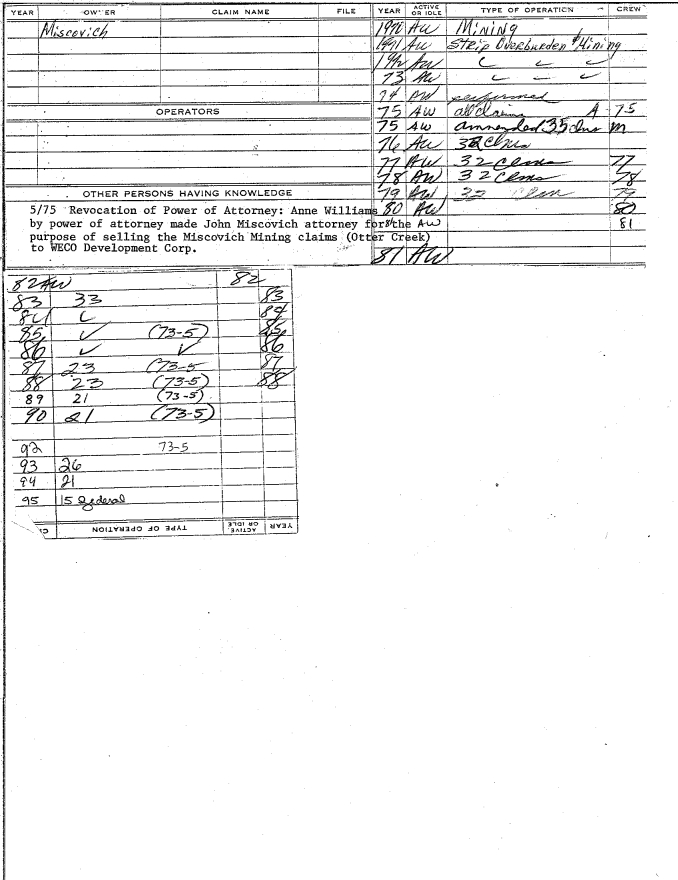 YEAR OWNER CLAIM NAME FILE YEAR ACTIVE OR IDLE TYPE OF OPERATION CREW
Miscovich 1970 AW Mining
1971 AW Strip Overburden & Mining
1972 AW
73 AW
74 AW performed
OPERATORS 75 AW all claims A 75
75 AW ammended 35 clms m
76 AW 32 Clms
77 AW 32 Clms 77
78 AW 32 Clms 78
OTHER PERSONS HAVING KNOWLEDGE 79 AW 32 Clm 79
80 AW 80
5/75 Revocation of Power of Attorney: Anne Williams
by power of attorney made John Miscovich attorney for the AW 81
purpose of selling the Miscovich Mining claims (Otter Creek)
to WECO Development Corp.
81 AW
82 AW 82
83 33 83
84 84
85 ✓ (73-5) 85
86 ✓ ✓ 86
87 23 (73-5 87
88 23 (73-5) 88
89 21 (73-5)
90 21 (73-5)
92 73-5
93 26
94 21
95 15 Federal
YEAR ACTIVE OR IDLE TYPE OF OPERATION